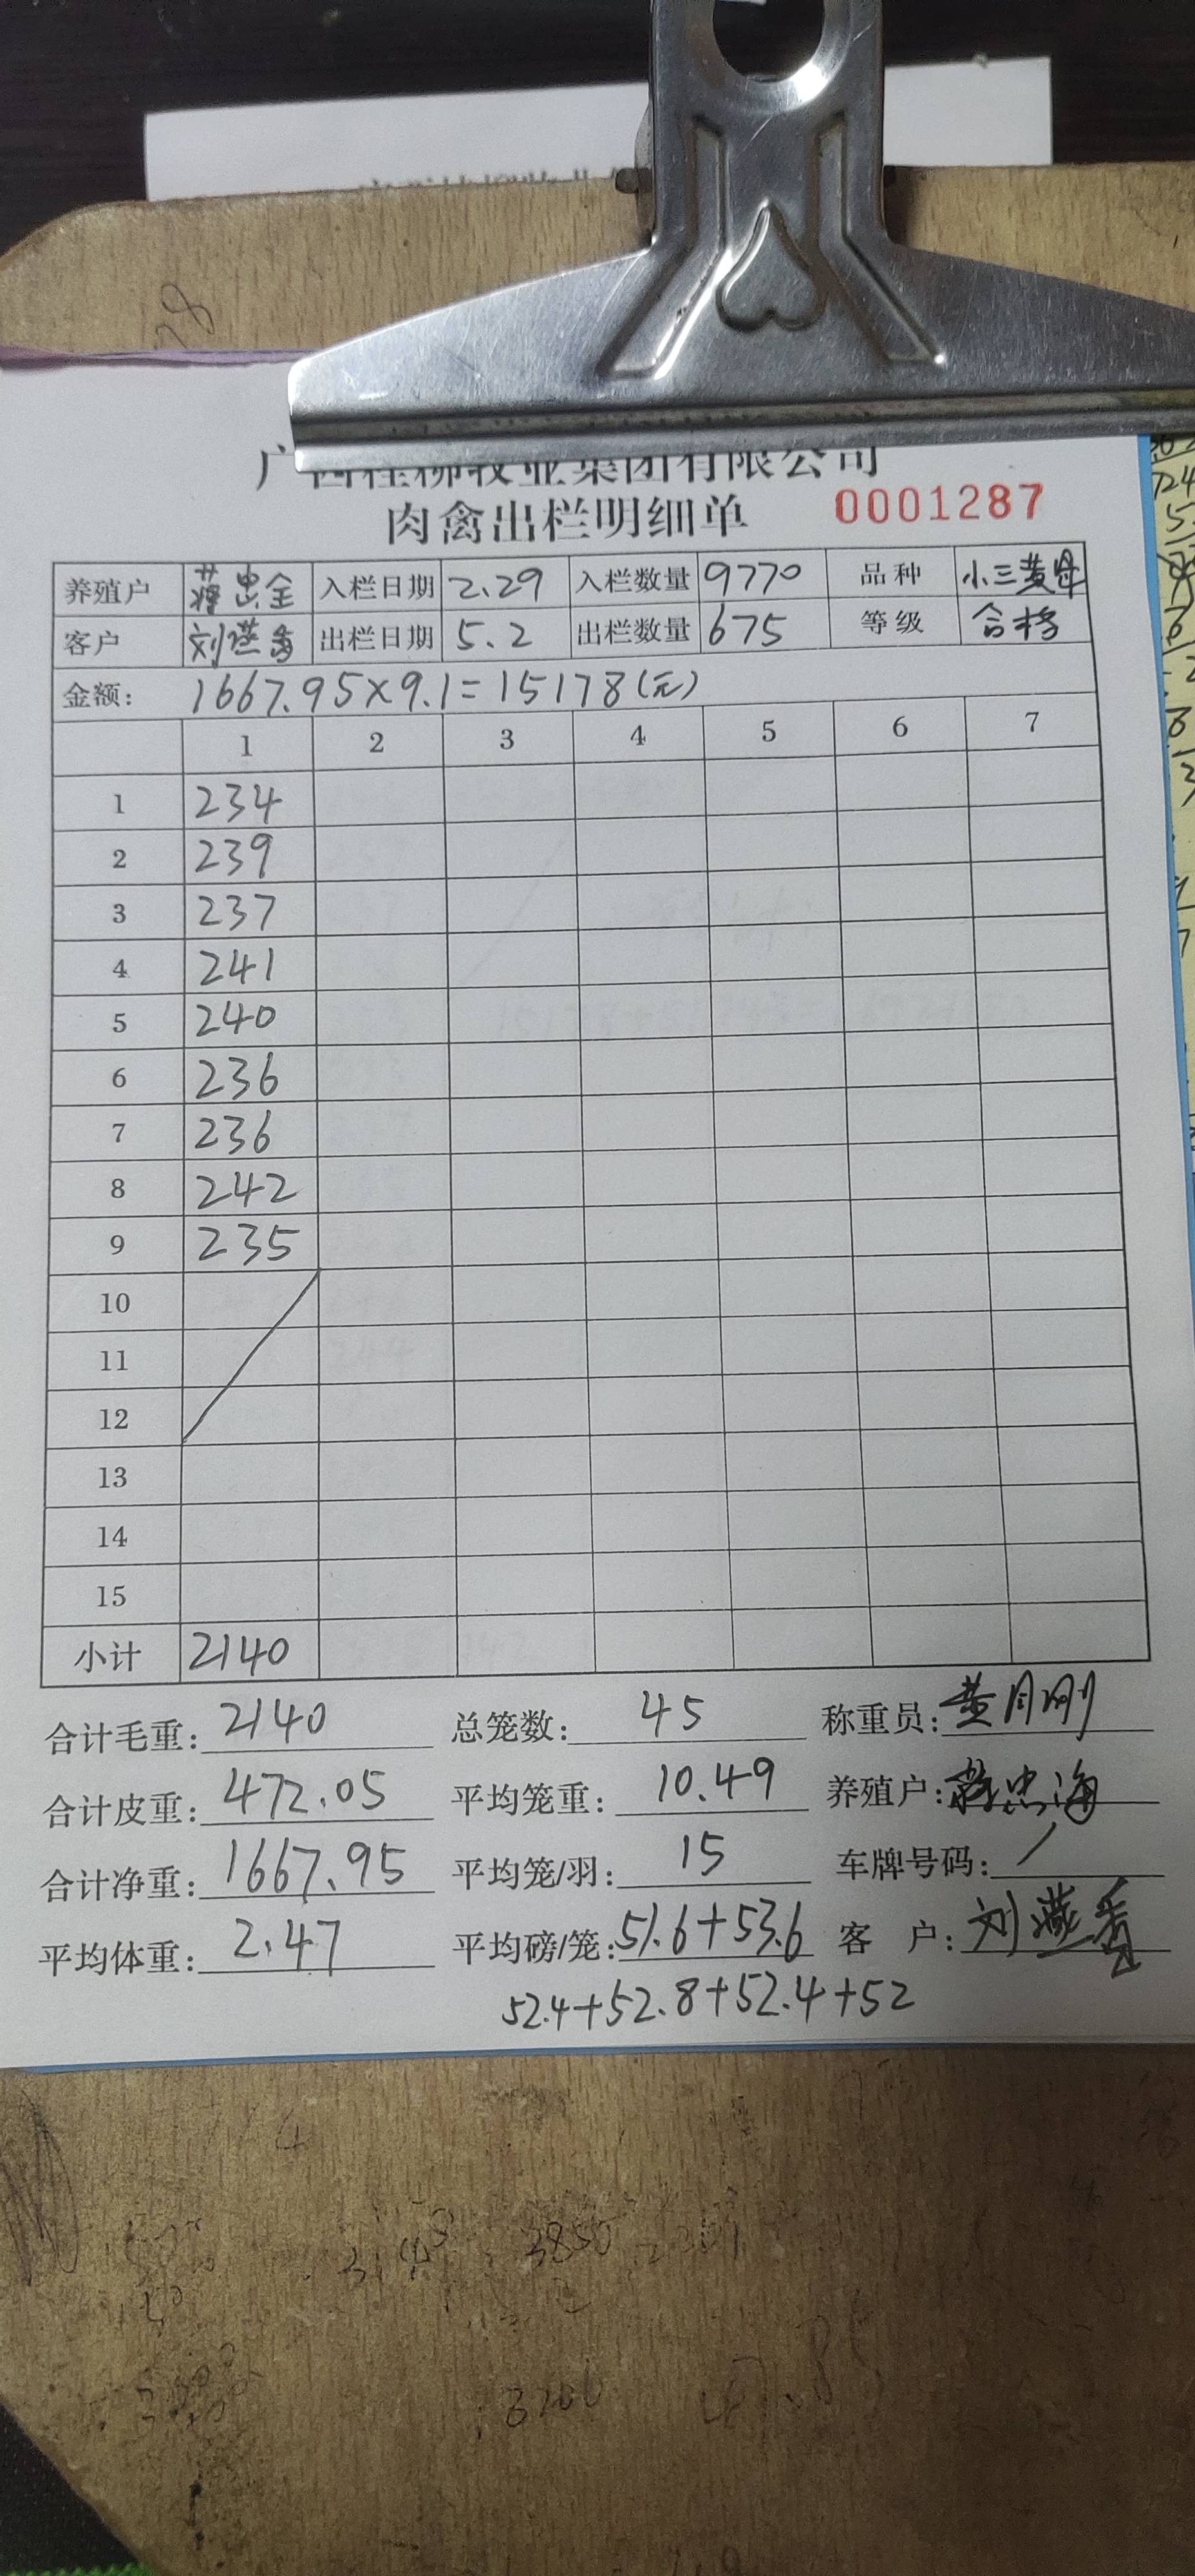 广西桂柳牧业集团有限公司
肉禽出栏明细单 0001287
养殖户 蒋忠全 入栏日期 2.29 入栏数量 9770 品种 小三黄母
客户 刘燕香 出栏日期 5.2 出栏数量 675 等级 合格
金额: 1667.95×9.1=15178(元)
1 2 3 4 5 6 7
1 234
2 239
3 237
4 241
5 240
6 236
7 236
8 242
9 235
10
11
12
13
14
15
小计 2140
合计毛重: 2140 总笼数: 45 称重员: 黄月刚
合计皮重: 472.05 平均笼重: 10.49 养殖户: 蒋忠海
合计净重: 1667.95 平均笼/羽: 15 车牌号码: /
平均体重: 2.47 平均磅/笼: 51.6+53.6 客户: 刘燕香
52.4+52.8+52.4+52